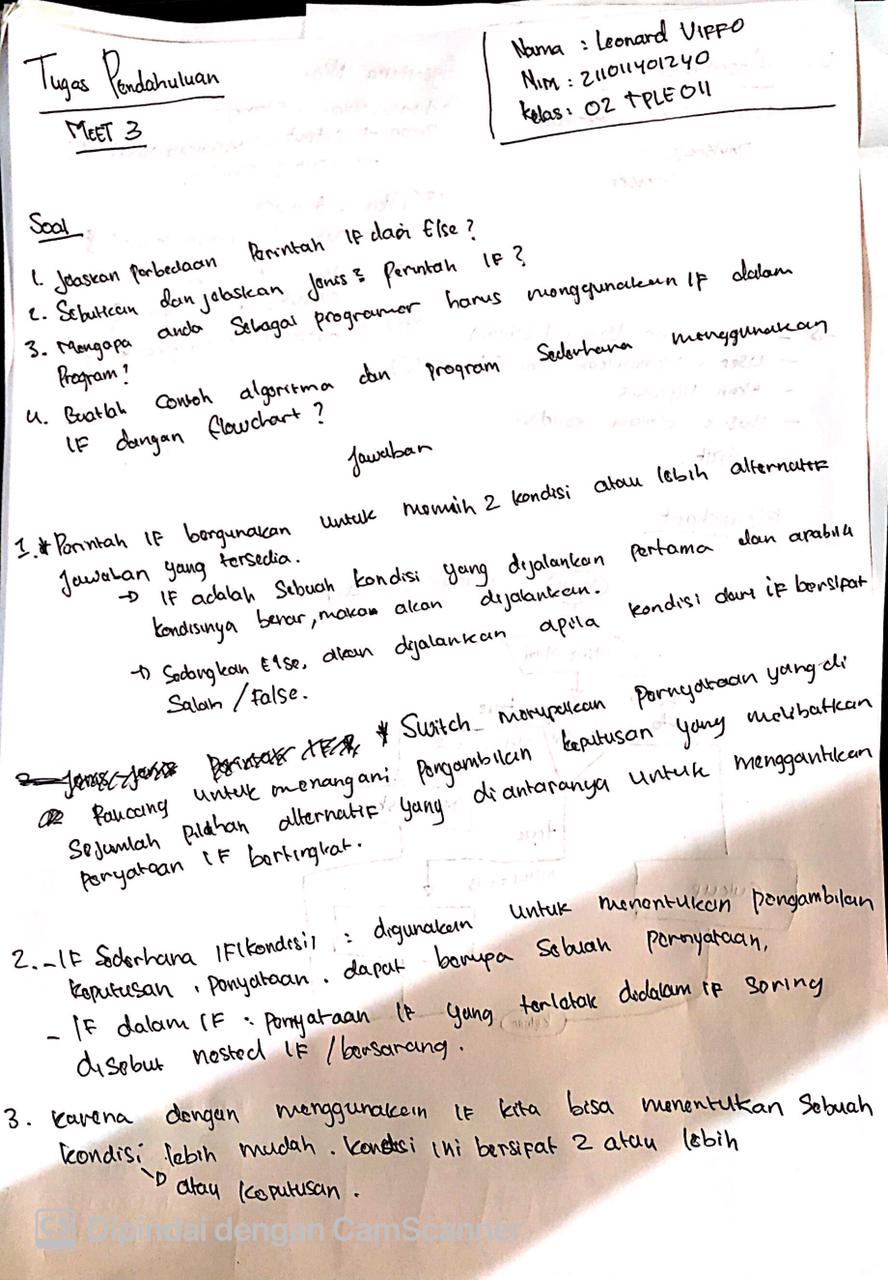 Tugas Pendahuluan
MEET 3
Nama : Leonard VIFFO
NIM : 211011401240
Kelas : 02 TPLE011
Soal
1. Jelaskan perbedaan Perintah IF dari Else ?
2. Sebutkan dan jelaskan Jenis² Perintah IF ?
3. Mengapa anda Sebagai programer harus menggunakan IF dalam
Program ?
4. Buatlah Contoh algoritma dan program Sederhana menggunakan
IF dengan flowchart ?
Jawaban
1. * Perintah IF bergunakan untuk memilih 2 kondisi atau lebih alternatif
Jawaban yang tersedia.
→ IF adalah Sebuah kondisi yang dijalankan pertama dan apabila
kondisinya benar, maka akan dijalankan.
→ Sedangkan Else, akan dijalankan apila kondisi dari if bersifat
Salah / False.
* Switch merupakan Pernyataan yang di
Rancang untuk menangani pengambilan keputusan yang melibatkan
Sejumlah pilihan alternatif yang diantaranya untuk menggantikan
peryataan IF bertingkat.
2. - IF Sederhana IF(kondisi) : digunakan untuk menentukan pengambilan
keputusan, Penyataan. dapat berupa Sebuah pernyataan,
- IF dalam IF : Pernyataan IF yang terletak didalam IF Sering
disebut nested IF / bersarang.
3. karena dengan menggunakan IF kita bisa menentukan Sebuah
kondisi lebih mudah. kondisi ini bersifat 2 atau lebih
↳ atau keputusan.
CS Dipindai dengan CamScanner